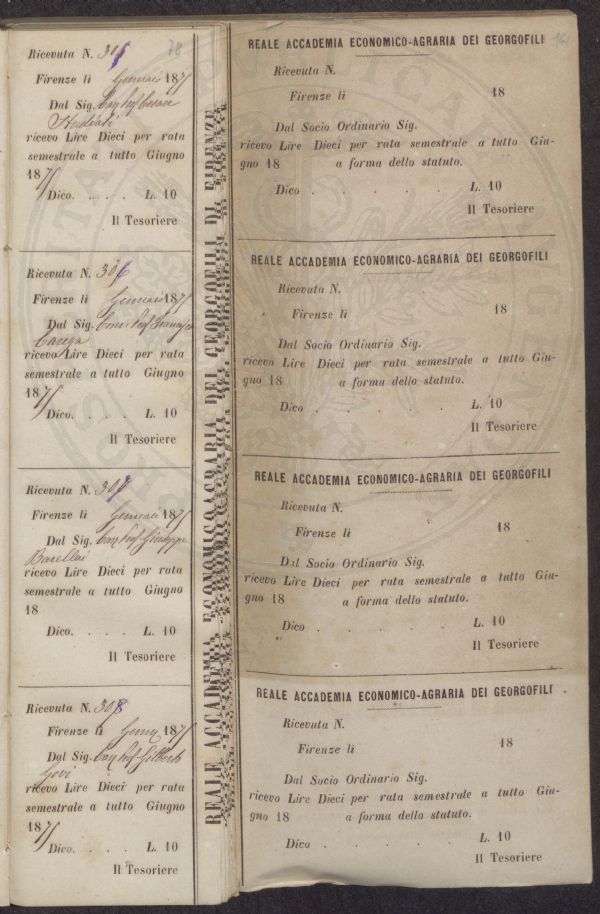 78
Ricevuta N. 305
Firenze lì Gennaio 187
Dal Sig. Cav Prof Cesare
Studiati
ricevo Lire Dieci per rata
semestrale a tutto Giugno
187
Dico. . . . . L. 10
Il Tesoriere
Ricevuta N. 306
Firenze lì Gennaio 187
Dal Sig. Com Prof Francesco
Carega
ricevo Lire Dieci per rata
semestrale a tutto Giugno
187
Dico. . . . . L. 10
Il Tesoriere
Ricevuta N. 307
Firenze lì Gennaio 187
Dal Sig. Cav Prof Giuseppe
Barellai
ricevo Lire Dieci per rata
semestrale a tutto Giugno
18
Dico. . . . . L. 10
Il Tesoriere
Ricevuta N. 308
Firenze lì 187
Dal Sig. Cav Prof Gilberto
Govi
ricevo Lire Dieci per rata
semestrale a tutto Giugno
187
Dico. . . . . L. 10
Il Tesoriere
REALE ACCADEMIA ECONOMICO-AGRARIA DEI GEORGOFILI DI FIRENZE
REALE ACCADEMIA ECONOMICO-AGRARIA DEI GEORGOFILI
Ricevuta N.
Firenze lì 18
Dal Socio Ordinario Sig.
ricevo Lire Dieci per rata semestrale a tutto Giu-
gno 18 a forma dello statuto.
Dico . . . . . L. 10
Il Tesoriere
REALE ACCADEMIA ECONOMICO-AGRARIA DEI GEORGOFILI
Ricevuta N.
Firenze lì 18
Dal Socio Ordinario Sig.
ricevo Lire Dieci per rata semestrale a tutto Giu-
gno 18 a forma dello statuto.
Dico . . . . . L. 10
Il Tesoriere
REALE ACCADEMIA ECONOMICO-AGRARIA DEI GEORGOFILI
Ricevuta N.
Firenze lì 18
Dal Socio Ordinario Sig.
ricevo Lire Dieci per rata semestrale a tutto Giu-
gno 18 a forma dello statuto.
Dico . . . . . L. 10
Il Tesoriere
REALE ACCADEMIA ECONOMICO-AGRARIA DEI GEORGOFILI
Ricevuta N.
Firenze lì 18
Dal Socio Ordinario Sig.
ricevo Lire Dieci per rata semestrale a tutto Giu-
gno 18 a forma dello statuto.
Dico . . . . . L. 10
Il Tesoriere